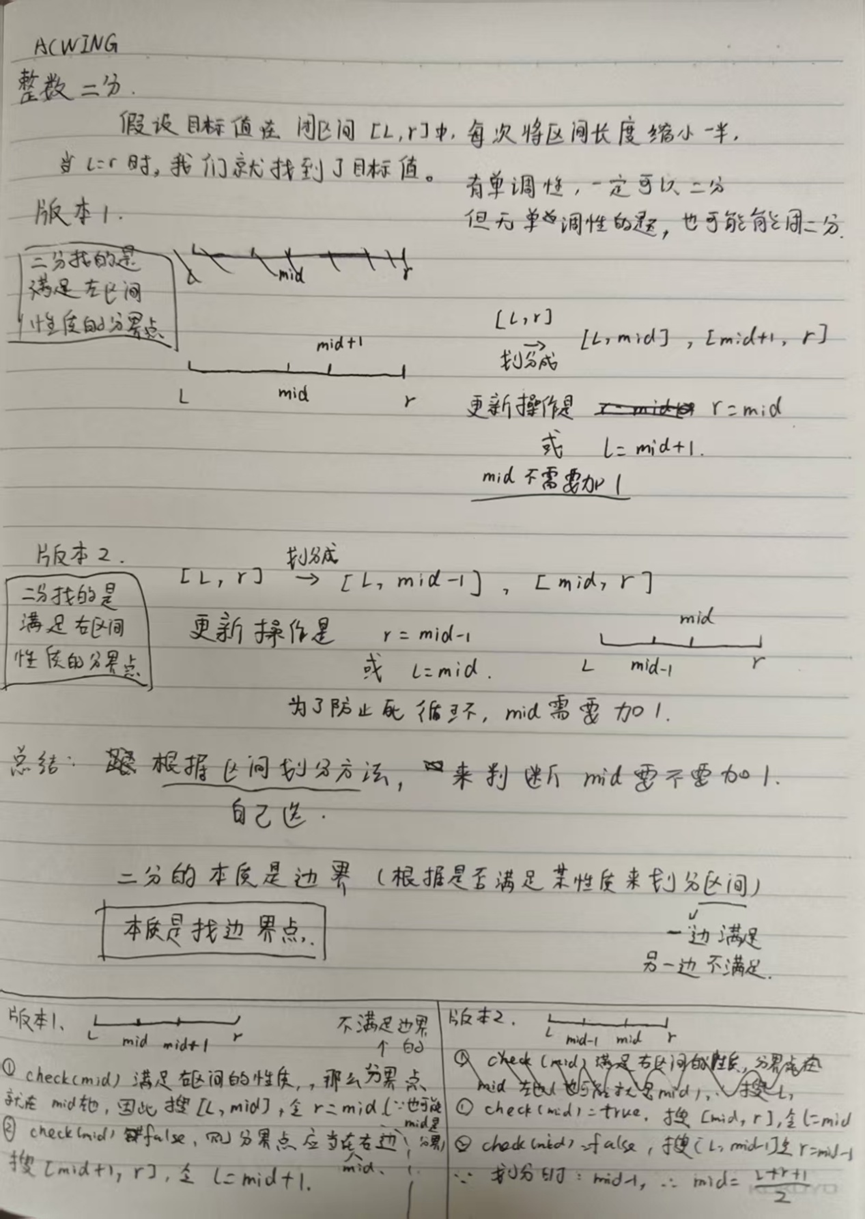 ACWING
整数二分.
假设目标值在闭区间[L,r]中,每次将区间长度缩小一半,
当L=r时,我们就找到了目标值。
有单调性,一定可以二分
但无单调性的题,也可能能用二分.
版本1.
二分找的是
满足左区间
性质的分界点
mid r
[L,r] → 划分成 [L,mid],[mid+1,r]
mid+1
L mid r
更新操作是 r=mid
或 L=mid+1.
mid不需要加1
版本2.
[L,r] 划分成 → [L,mid-1],[mid,r]
二分找的是
满足右区间
性质的分界点
更新操作是 r=mid-1
或 L=mid.
mid
L mid-1 r
为了防止死循环,mid需要加1.
总结: 根据区间划分方法,来判断mid要不要加1.
自己选.
二分的本质是边界(根据是否满足某性质来划分区间)
本质是找边界点.
一边满足
另一边不满足.
版本1、
L mid mid+1 r
不满足边界
↑的
① check(mid)满足右区间的性质,那么分界点
就在mid, 因此搜[L,mid],令r=mid(∵也可能
mid是
分界)
② check(mid) false,则分界点应当在右边
mid、
搜[mid+1,r],令L=mid+1.
版本2.
L mid-1 mid r
① check(mid)满足右区间的性质,分界点在
mid 左 也可能就是mid, 搜L,
① check(mid)=true,搜[mid,r],令L=mid
② check(mid)=false,搜[L,mid-1]令r=mid-1
∵划分时:mid-1,∴mid=L+r+1/2